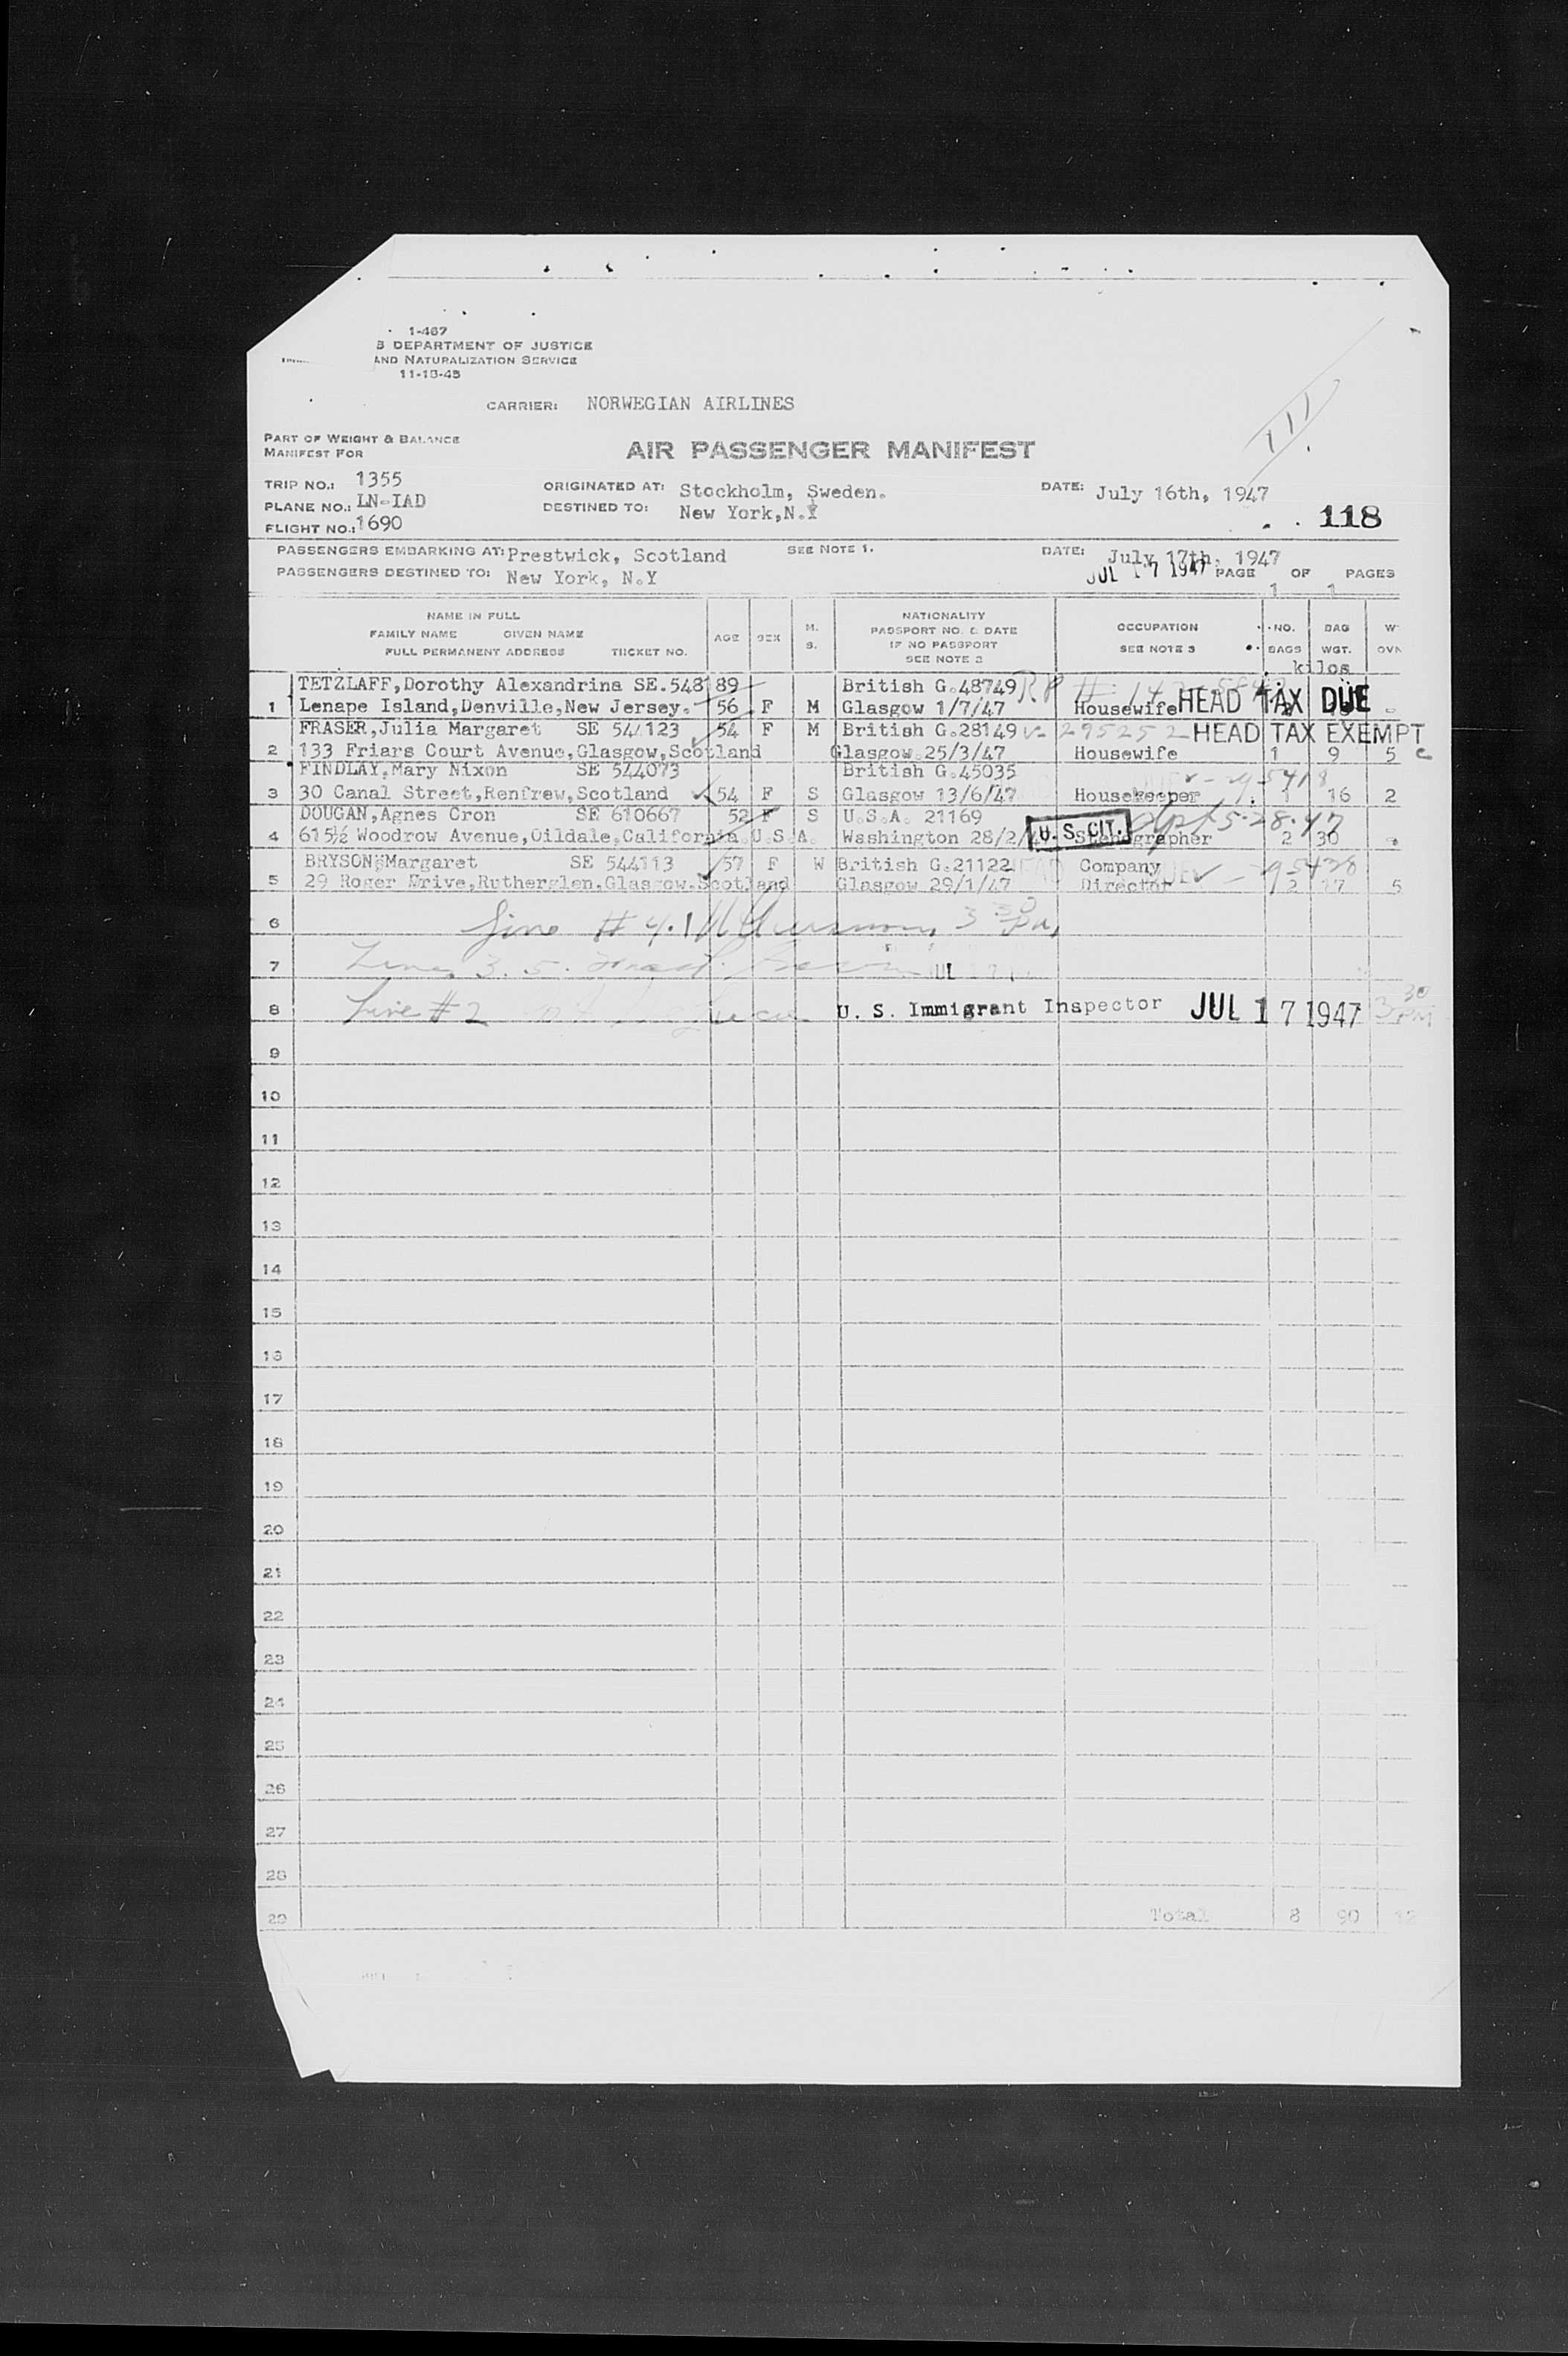 1-467
S DEPARTMENT OF JUSTICE
AND NATURALIZATION SERVICE
11-13-45
CARRIER: NORWEGIAN AIRLINES
PART OF WEIGHT & BALANCE
MANIFEST FOR
AIR PASSENGER MANIFEST
111
TRIP NO.: 1355 ORIGINATED AT: Stockholm, Sweden. DATE: July 16th, 1947
PLANE NO.: LN-IAD DESTINED TO: New York,N.Y
FLIGHT NO.: 1690 118
PASSENGERS EMBARKING AT: Prestwick, Scotland SEE NOTE 1. DATE: July 17th, 1947
PASSENGERS DESTINED TO: New York, N.Y JUL 17 1947 PAGE 1 OF 1 PAGES
NAME IN FULL
FAMILY NAME GIVEN NAME
FULL PERMANENT ADDRESS TICKET NO. AGE SEX M. S. NATIONALITY PASSPORT NO. & DATE IF NO PASSPORT SEE NOTE 2 OCCUPATION SEE NOTE 3 NO. BAGS BAG WGT.
kilos
TETZLAFF,Dorothy Alexandrina SE.548189 British G.48749 RP #
1 Lenape Island,Denville,New Jersey. 56 F M Glasgow 1/7/47 Housewife HEAD TAX DUE
FRASER,Julia Margaret SE 544123 54 F M British G.28149 v- 295252 HEAD TAX EXEMPT
2 133 Friars Court Avenue,Glasgow,Scotland Glasgow.25/3/47 Housewife 1 9 5 c
FINDLAY,Mary Nixon SE 544073 British G.45035
3 30 Canal Street,Renfrew,Scotland 54 F S Glasgow 13/6/47 Housekeeper 1 16 2
DOUGAN,Agnes Cron SE 610667 52 F S U.S.A. 21169 U.S. CIT. dpt 5.28.47
4 615½ Woodrow Avenue,Oildale,California.U.S.A. Washington 28/2/ Stenographer 2 30
BRYSON,Margaret SE 544113 57 F W British G.21122 Company
5 29 Roger Drive,Rutherglen,Glasgow.Scotland Glasgow 29/1/47 Director 2 17 5
6 Line # 4.1 3 30 Pm
7 Lines 3. 5. JUL
8 Line # 2 U. S. Immigrant Inspector JUL 17 1947 3 30 PM
9
10
11
12
13
14
15
16
17
18
19
20
21
22
23
24
25
26
27
28
29 Total 8 90 12